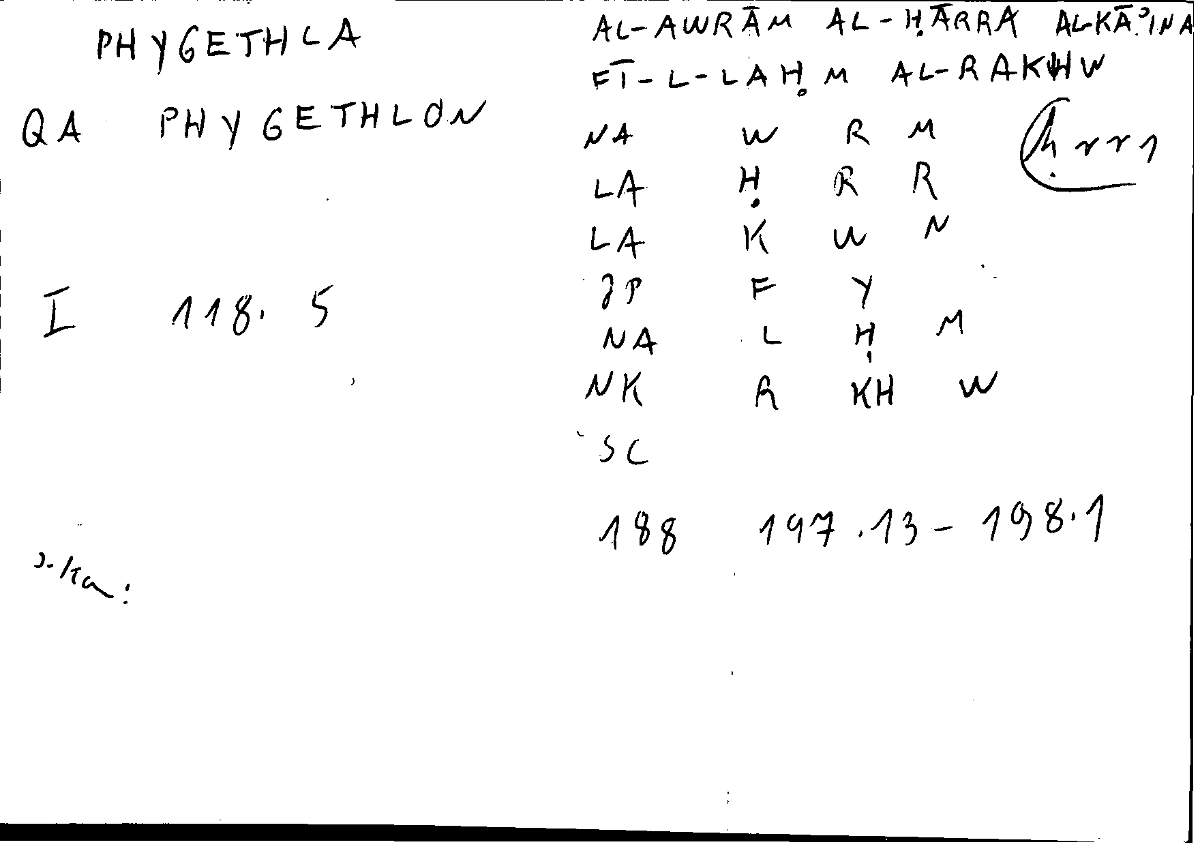 PHYGETHLA
QA PHYGETHLON
I 118. 5
AL-AWRĀM AL-ḤĀRRA AL-KĀʾINA
FĪ-L-LAḤM AL-RAKHW
NA W R M
LA Ḥ R R
LA K W N
JP F Y
NA L Ḥ M
NK R KH W
SC
188 197.13-198.1